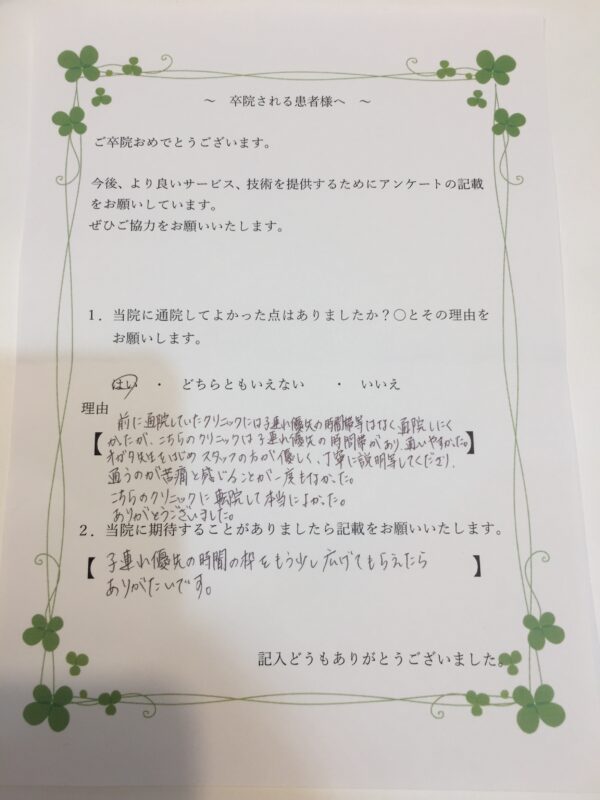 ～　卒院される患者様へ　～
ご卒院おめでとうございます。
今後、より良いサービス、技術を提供するためにアンケートの記載
をお願いしています。
ぜひご協力をお願いいたします。
１．当院に通院してよかった点はありましたか？○とその理由を
お願いします。
はい　・　どちらともいえない　　・　いいえ
理由
前に通院していたクリニックには子連れ優先の時間帯等はなく通院しにく
【かたが、こちらのクリニックは子連れ優先の時間帯があり、通いやすかった。】
オガタ先生をはじめスタッフの方が優しく、丁寧に説明等してくださり、
通うのが苦痛と感じることが一度もなかった。
こちらのクリニックに転院して本当によかった。
ありがとうございました。
２．当院に期待することがありましたら記載をお願いいたします。
【子連れ優先の時間の枠をもう少し広げてもらえたら】
ありがたいです。
記入どうもありがとうございました。